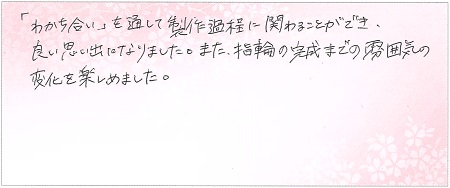 「わかち合い」を通して製作過程に関わることができ、
良い思い出になりました。また、指輪の完成までの雰囲気の
変化を楽しめました。